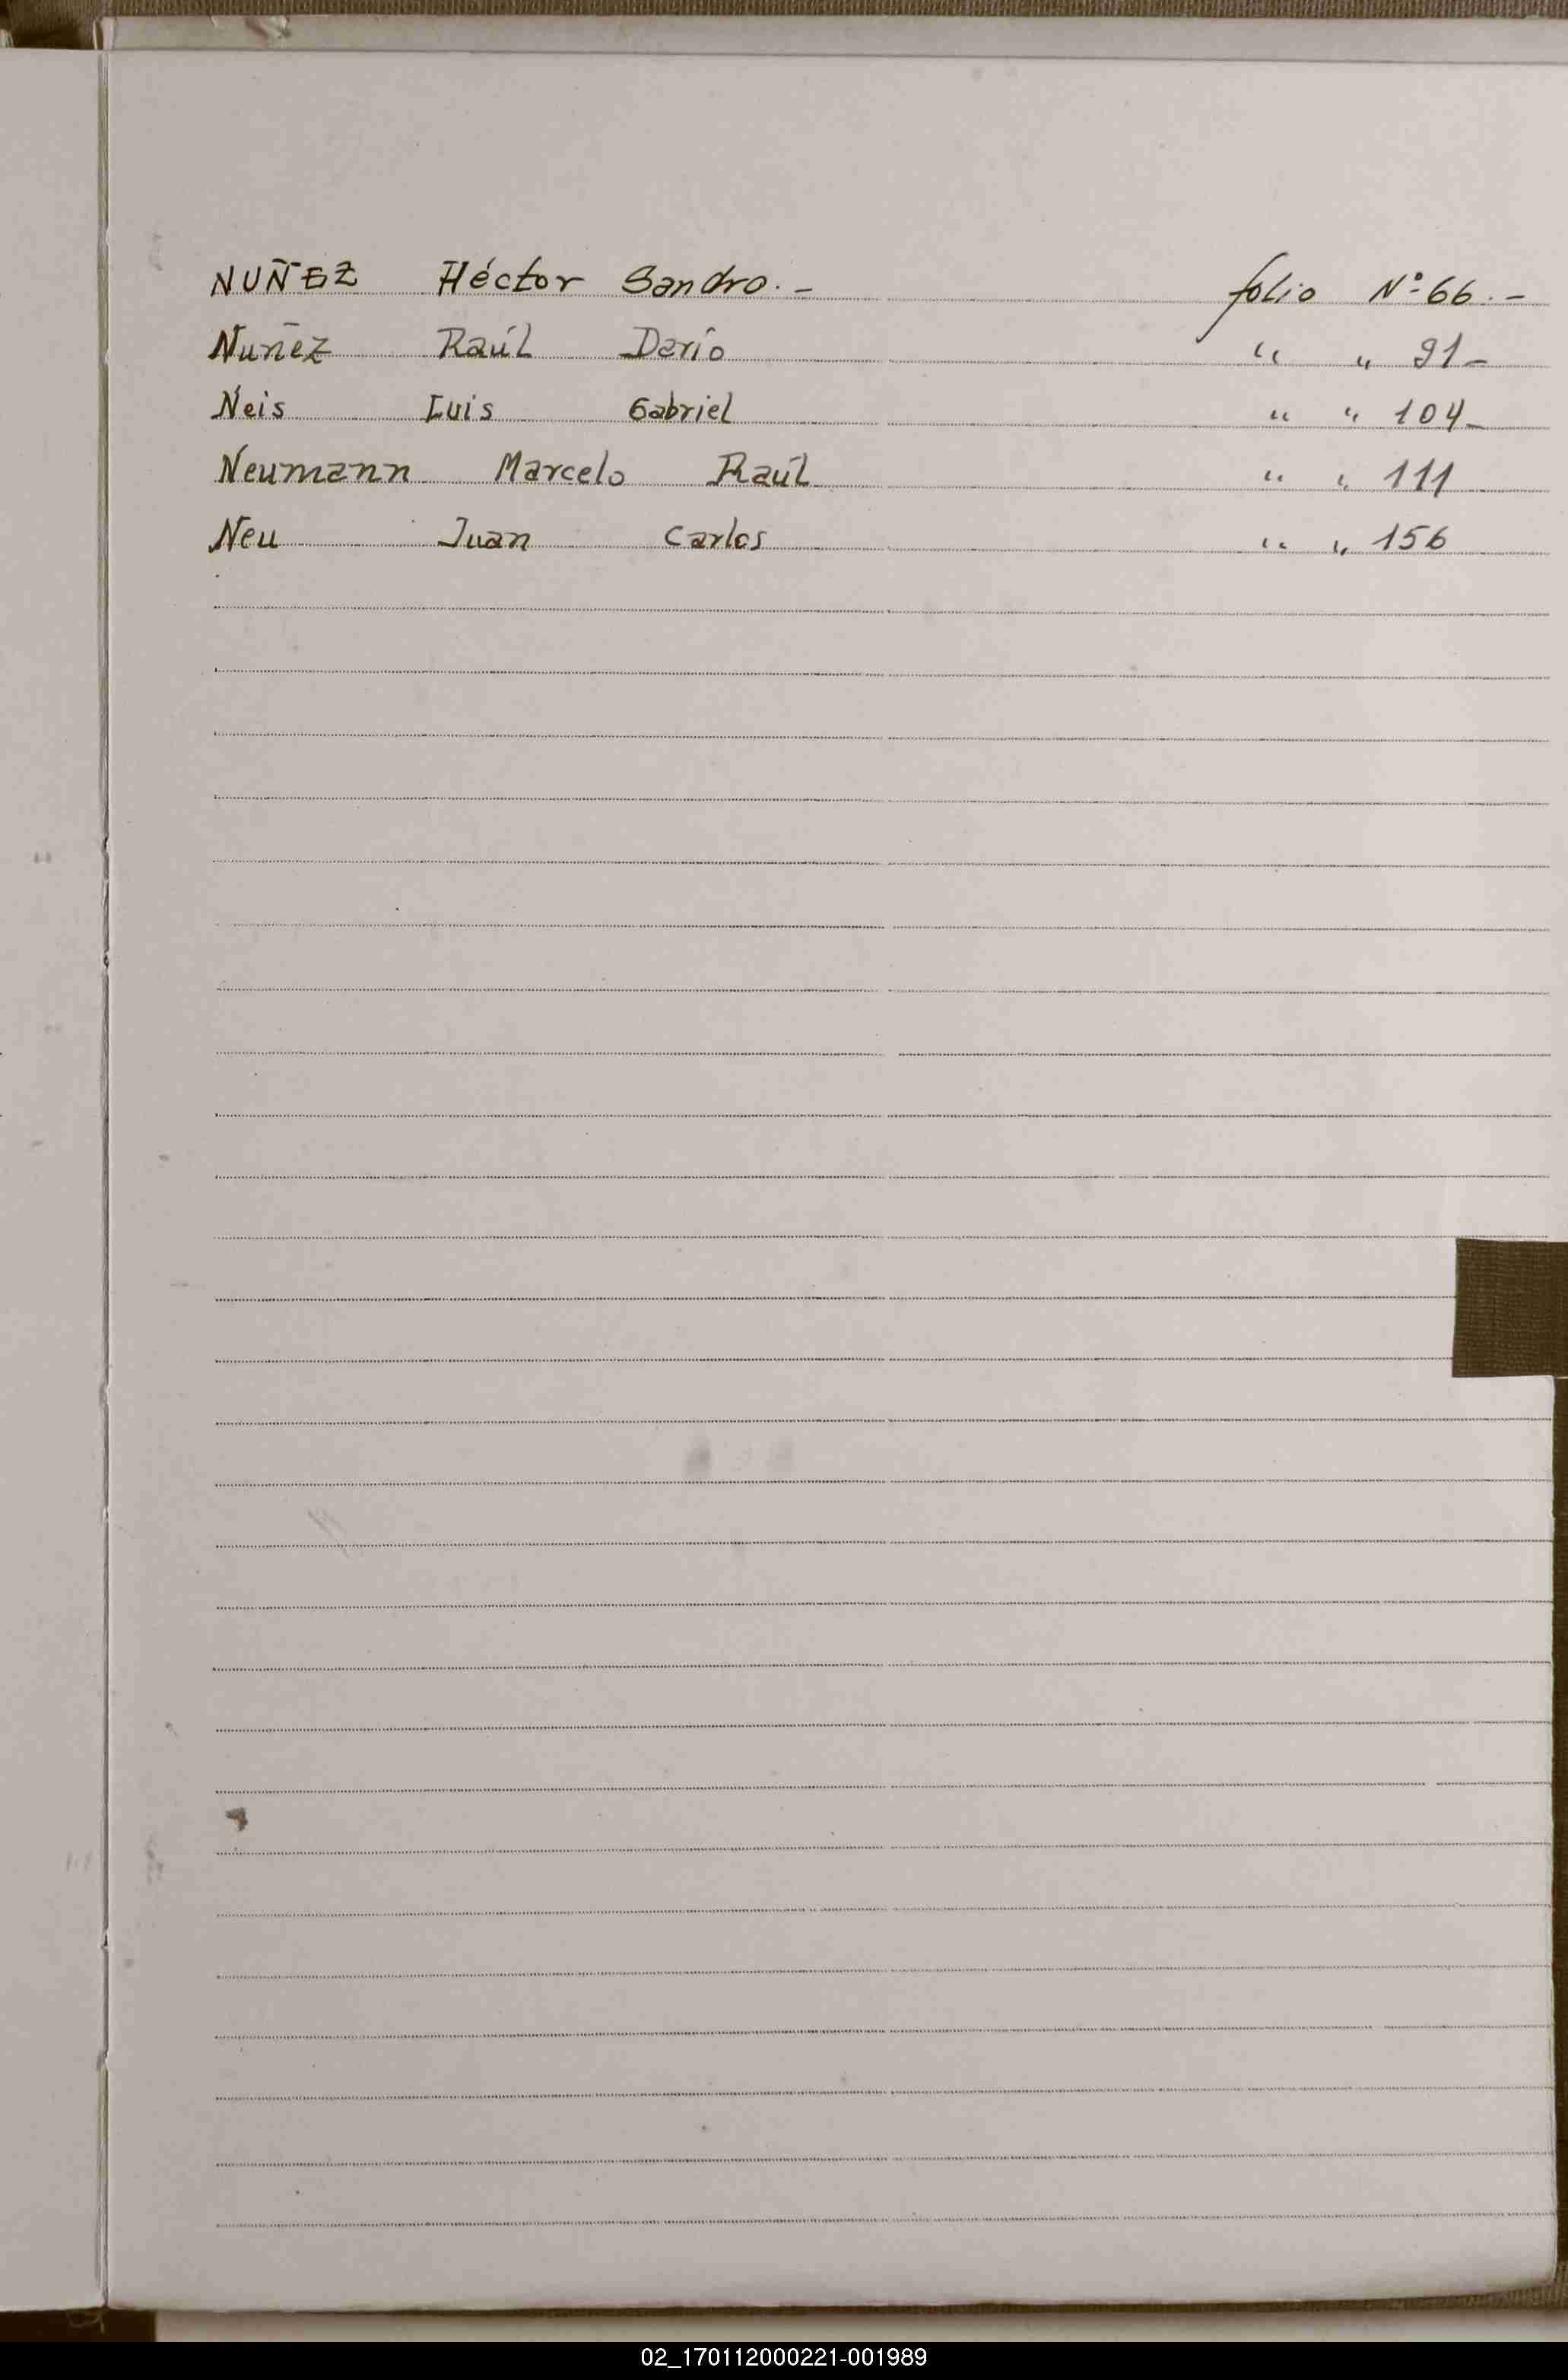 NUÑEZ Héctor Sandro.- folio Nº 66.-
Nuñez Raúl Darío " " 91-
Neis Luis Gabriel " " 104-
Neumann Marcelo Raúl " " 111
Neu Juan Carlos " " 156
02_170112000221-001989